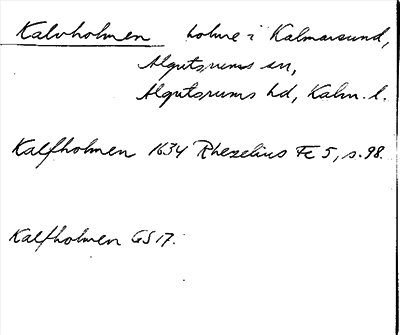 Kalvholmen holme i Kalmarsund,
Algutsrums sn,
Algutsrums hd, Kalm. l.
Kalfholmen 1634 Rhezelius Fc 5, s. 98.
Kalfholmen GS 17.